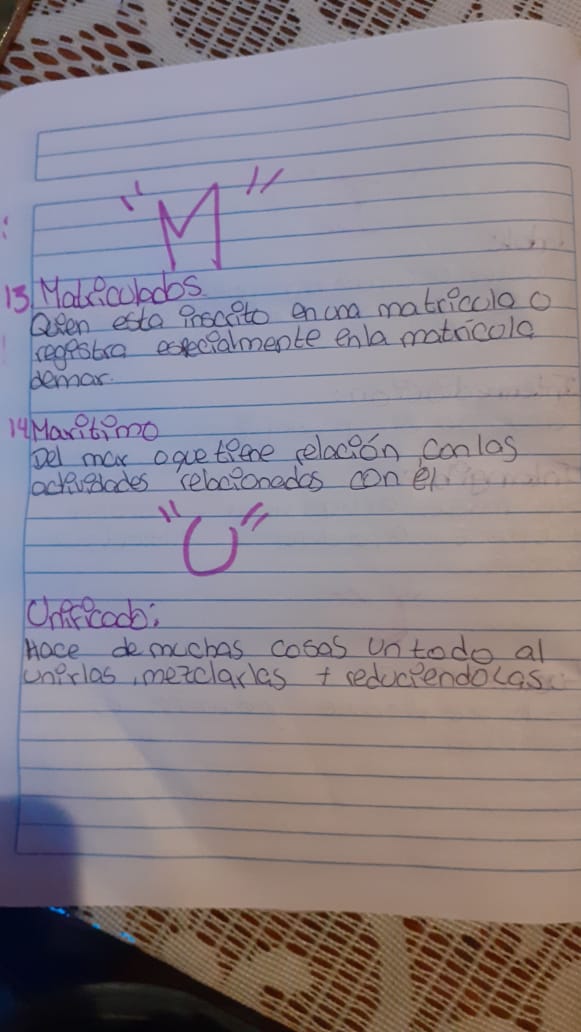 "M"
13. Matriculados.
Quien esta inscrito en una matricula o
registra especialmente en la matrícula
demar.
14 Maritimo
Del mar o que tiene relación con las
actividades relacionadas con él.
"U"
Unificado:
Hace de muchas cosas un todo al
unirlas, mezclarlas + reduciendolas.